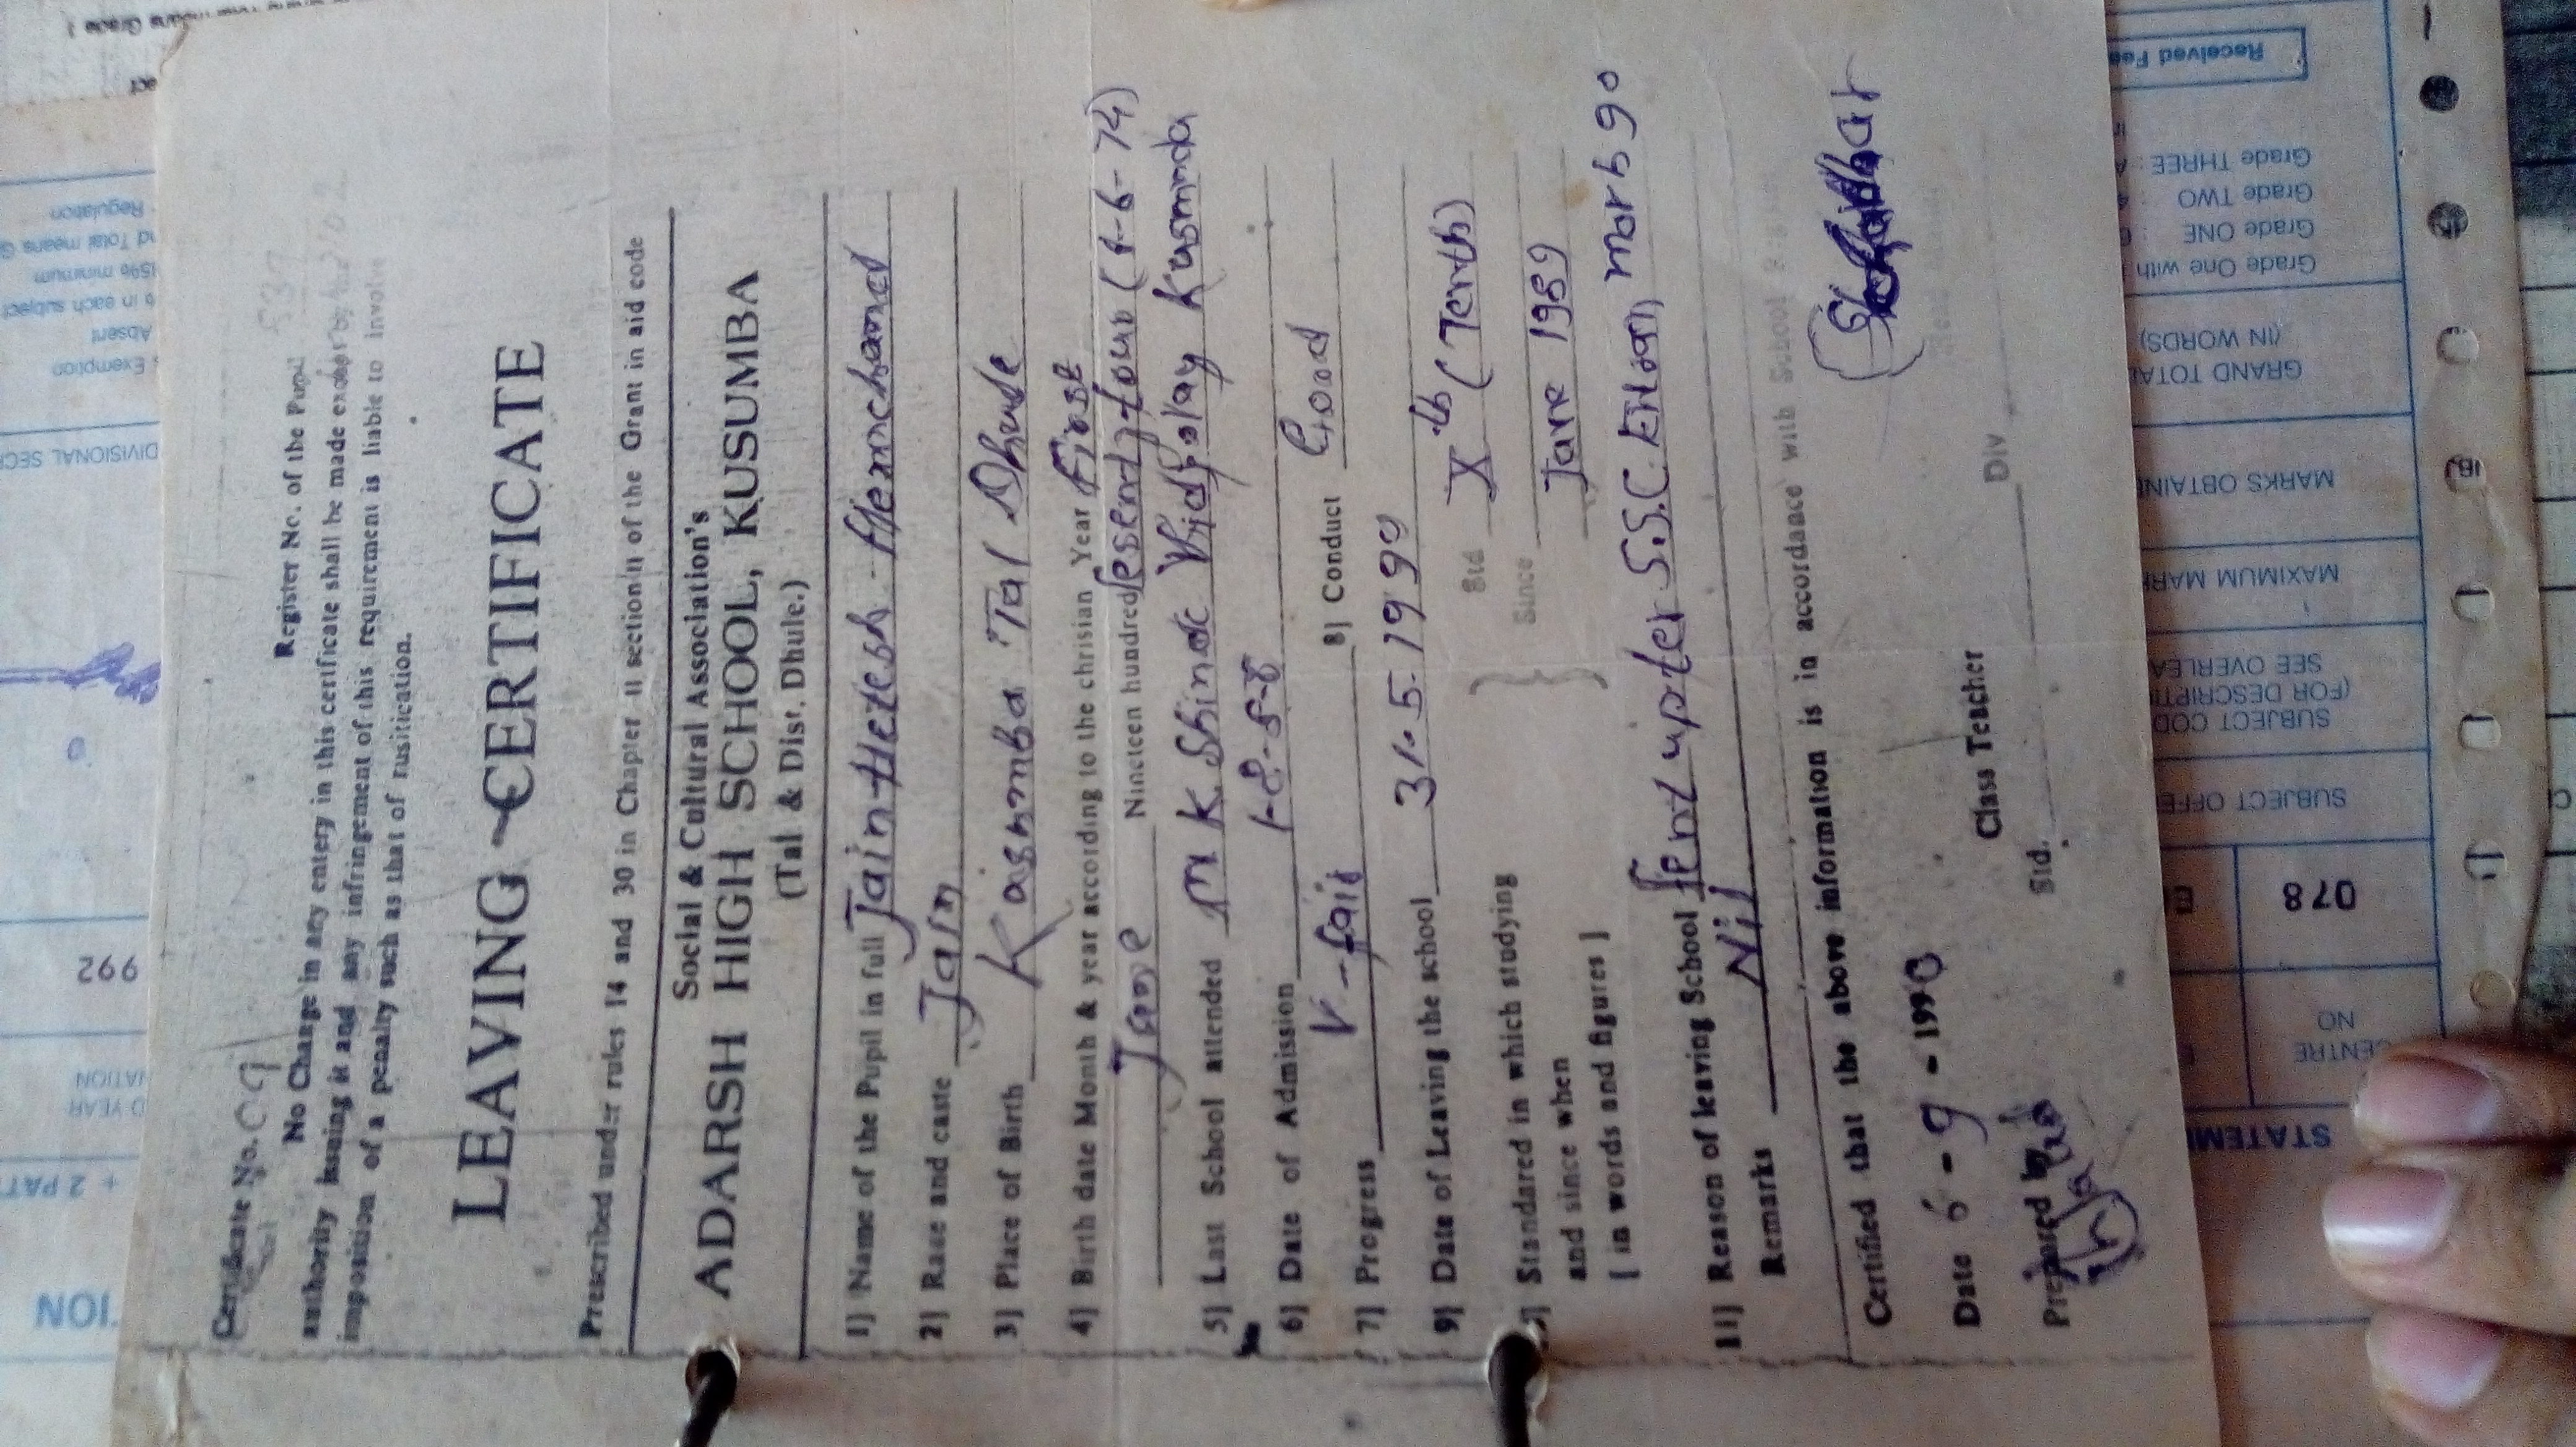 Certificate No. 09
Register No. of the Pupil 537
No Change in any entery in this cerificate shall be made except by the
authority issuing it and any infringement of this requirement is liable to involve
imposition of a penalty such as that of rusitication.
LEAVING CERTIFICATE
Prescribed under rules 14 and 30 in Chapter II section II of the Grant in aid code
Social & Cultural Association's
ADARSH HIGH SCHOOL, KUSUMBA
(Tal & Dist. Dhule.)
1] Name of the Pupil in full Jain Hetesh Hemchand
2] Race and caste Jain
3] Place of Birth Kasumba Tal Dhule
4] Birth date Month & year according to the chrisian Year First
June Nineteen hundred Seventy four (1-6-74)
5] Last School attended M K Shinde Vidyalay Kusumba
6] Date of Admission 1-8-88
7] Progress V-fair 8] Conduct Good
9] Date of Leaving the school 31.5.1990
Standared in which studying Std Xth (Tenth)
and since when Since June 1989
[ in words and figures ]
11] Reason of leaving School Sent upfer S.S.C. EXam march 90
Remarks Nil
Certified that the above information is in accordance with School
Date 6 - 9 - 1990
Class Teacher
Prepared by
Std. Div
Received Fee
Grade THREE
Grade TWO
Grade ONE
Grade One with
GRAND TOTAL
(IN WORDS)
MARKS OBTAIN
MAXIMUM MARK
SUBJECT COD
(FOR DESCRIPTI
SEE OVERLEA
SUBJECT OFFE
078
CENTRE
NO
STATEM
Regulation
nd Total means G
15% minimum
in each subject
Absent
Exemption
DIVISIONAL SECR
992
D YEAR
NATION
+ 2 PAT
TION